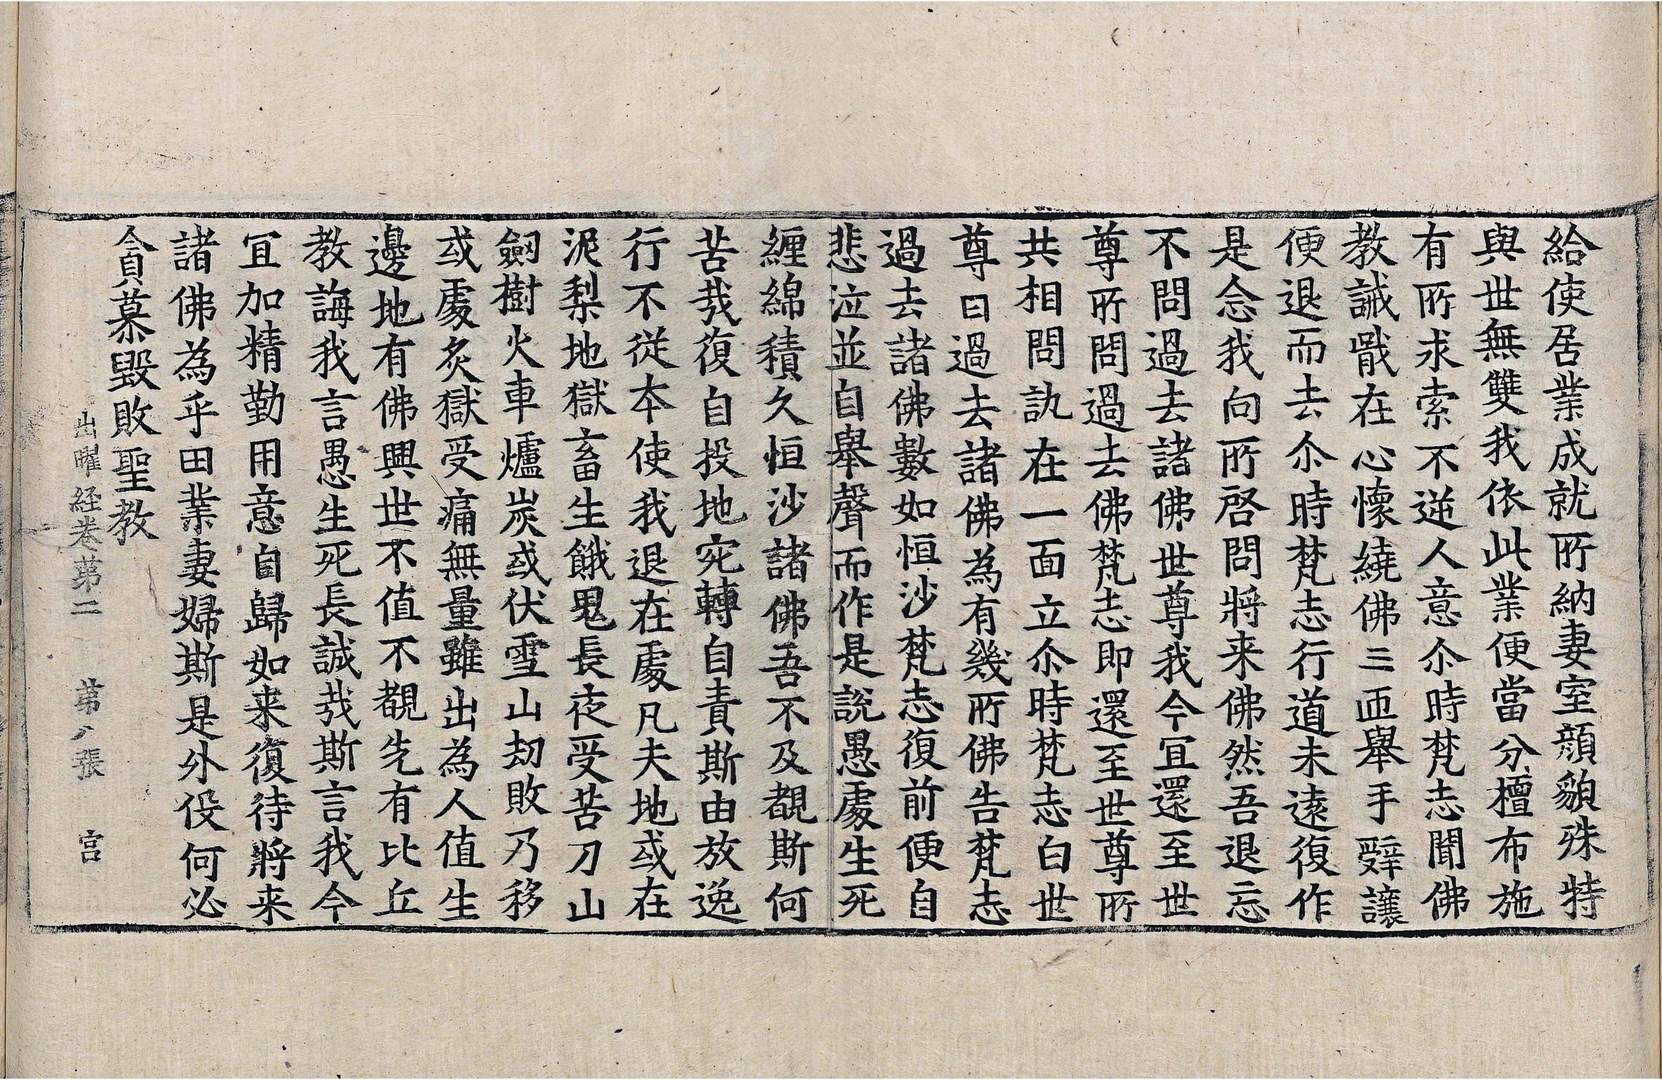 給使居業成就所納妻室顔貌殊特
與世無雙我依此業便當分檀布施
有所求索不逆人意尒時梵志聞佛
教誡戢在心懷繞佛三匝舉手辭讓
便退而去尒時梵志行道未遠復作
是念我向所啓問將来佛然吾退忘
不問過去諸佛世尊我今宜還至世
尊所問過去佛梵志即還至世尊所
共相問訊在一面立尒時梵志白世
尊曰過去諸佛為有幾所佛告梵志
過去諸佛數如恒沙梵志復前便自
悲泣並自舉聲而作是說愚處生死
纏綿積久恒沙諸佛吾不及覩斯何
苦哉復自投地宛轉自責斯由放逸
行不從本使我退在處凡夫地或在
泥梨地獄畜生餓鬼長夜受苦刀山
劔樹火車爐炭或伏雪山劫敗乃移
或處炙獄受痛無量雖出為人值生
邊地有佛興世不值不覩先有比丘
教誨我言愚生死長誠哉斯言我今
宜加精勤用意自歸如来復待將来
諸佛為乎田業妻婦斯是外役何必
貪慕毀敗聖教
出曜経卷苐二 苐八張 宫